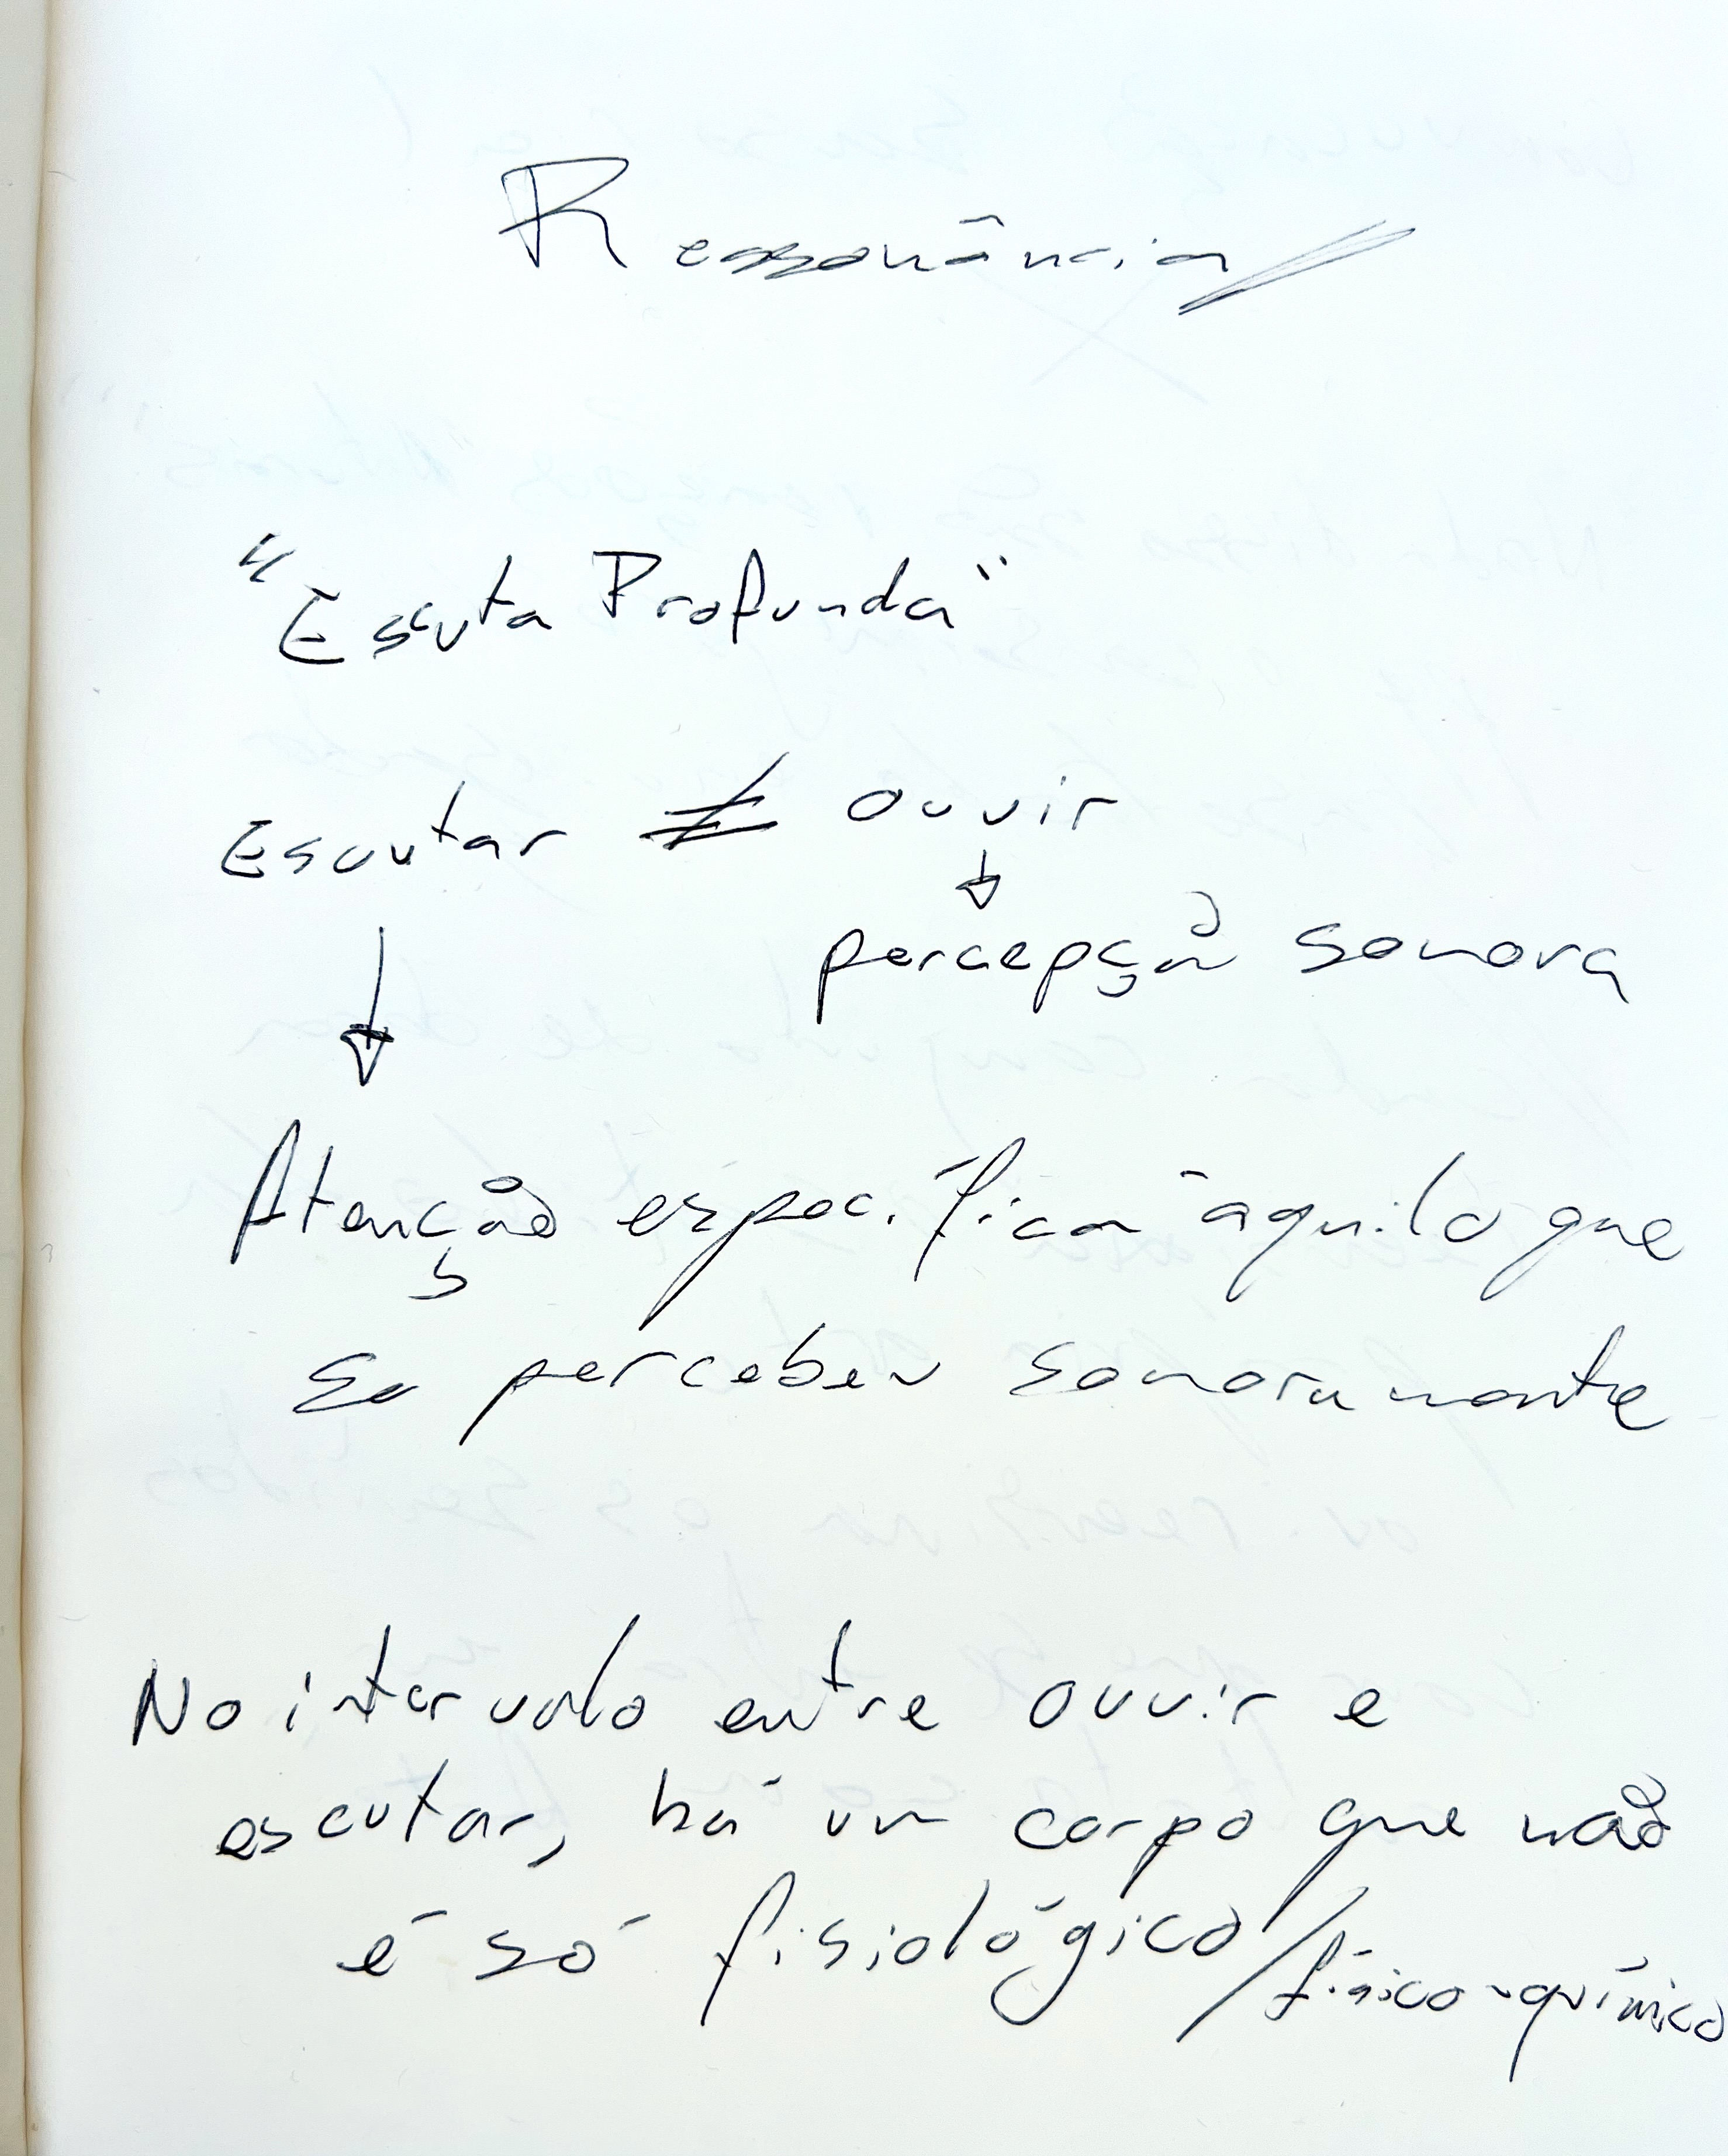 Ressonância
"Escuta Profunda"
Escutar ≠ ouvir
↓
percepção sonora
↓
Atenção específica àquilo que
se percebeu sonoramente
No intervalo entre ouvir e
escutar, há um corpo que não
é só fisiológico/físico-químico